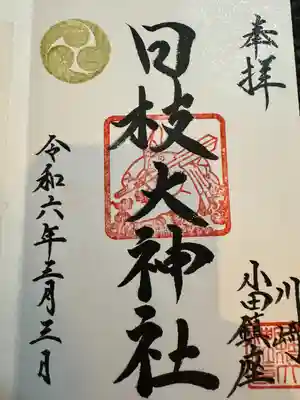 奉拝
川崎
小田鎮座
日枝大神社
令和六年三月三日